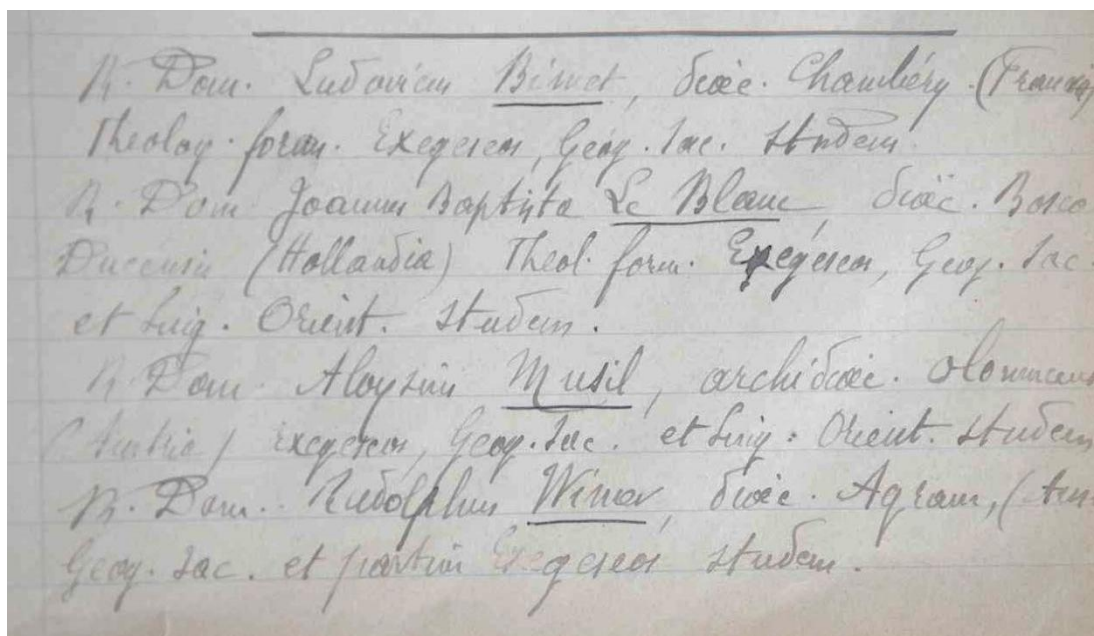 R. Dom. Ludovicus Binet, dioec. Chambéry. (Francia)
Theolog. form. Exegeseos, Geog. sac. studens.
R. Dom. Joannes Baptista Le Blanc, dioec. Bosco
Ducensis (Hollandia) Theol. form. Exegeseos, Geog. sac.
et ling. Orient. studens.
R. Dom. Aloysius Musil, archidioec. Olomucens
(Austria) Exegeseos, Geog. sac. et ling. Orient. studens
R. Dom. Rudolphus Wimer, dioec. Agram, (Aus
Geog. sac. et partim Exegeseos studens.